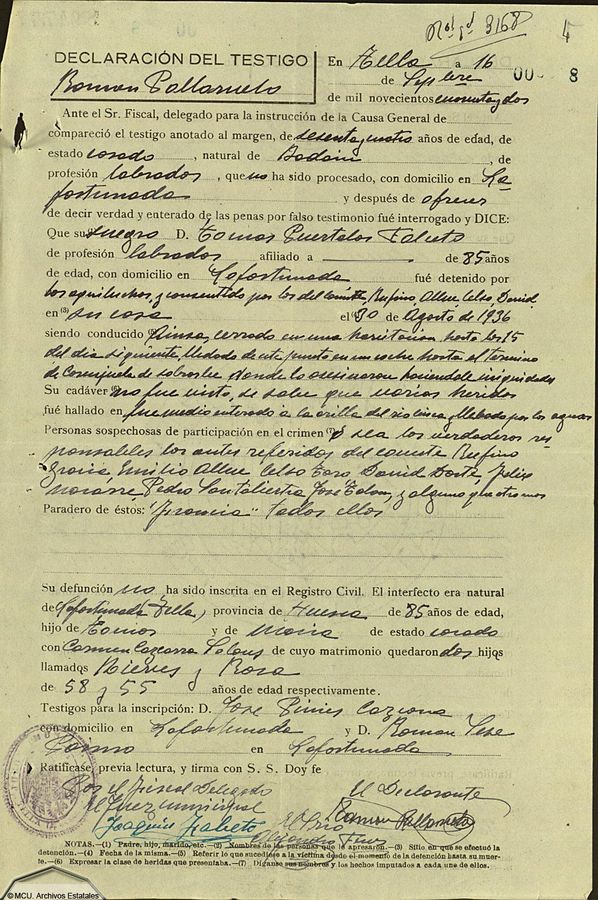 Nol pd 3168
4
DECLARACIÓN DEL TESTIGO
Ramon Pallaruelo
En Tella a 16
de Sepbre 00 8
de mil novecientos cuarenta y dos
Ante el Sr. Fiscal, delegado para la instrucción de la Causa General de
compareció el testigo anotado al margen, de sesenta y cuatro años de edad, de
estado casado, natural de Badain, de
profesión labrador, que no ha sido procesado, con domicilio en La
fortunada y después de ofrecer
de decir verdad y enterado de las penas por falso testimonio fué interrogado y DICE:
Que su suegro D. Tomas Puertolas Falceto
de profesión labrador afiliado a de 85 años
de edad, con domicilio en Lafortunada fué detenido por
los aguiluchos y consentido por los del comite, Rufino, Allue, Celso, David
en (3) su casa el 30 de Agosto de 1936
siendo conducido Ainsa, cerrado en una havitacion hasta las 15
del dia siguiente, llevado de este punto en un coche hasta el termino
de de Sobrarbe, donde lo asesinaron haciendole iniquidades
Su cadáver no fue visto, se sabe que varios heridas
fué hallado en fue medio enterrado a la orilla del rio Cinca y llebado por las aguas
Personas sospechosas de participación en el crimen (7) o sea los verdaderos res
ponsables los antes referidos del comite Rufino
Gracia Emilio Allue Celso David Felix
Pedro Santaliestra Jose y alguno que otro mas
Paradero de éstos: "Francia" todos ellos
Su defunción no ha sido inscrita en el Registro Civil. El interfecto era natural
de Lafortunada (Tella) provincia de Huesca de 85 años de edad,
hijo de Tomas y de Maria de estado casado
con Carmen Cazcarra de cuyo matrimonio quedaron dos hijos
llamados Nieves y Rosa
de 58 y 55 años de edad respectivamente.
Testigos para la inscripción: D. Jose
con domicilio en Lafortunada y D. Ramon Sese
en Lafortunada
Ratifícase, previa lectura, y firma con S. S. Doy fe
Por el Fiscal Delegado El Declarante
El Juez municipal
Joaquin Falceto El Srio Ramon Pallaruelo
NOTAS.—(1) Padre, hijo, marido, etc.—(2) Nombres de las personas que le apresaron.—(3) Sitio en que se efectuó la
detención.—(4) Fecha de la misma.—(5) Referir lo que sucediese a la víctima desde el momento de la detención hasta su muer-
te.—(6) Expresar la clase de heridas que presentaba.—(7) Díganse sus nombres y los hechos imputados a cada uno de ellos.
© MCU. Archivos Estatales